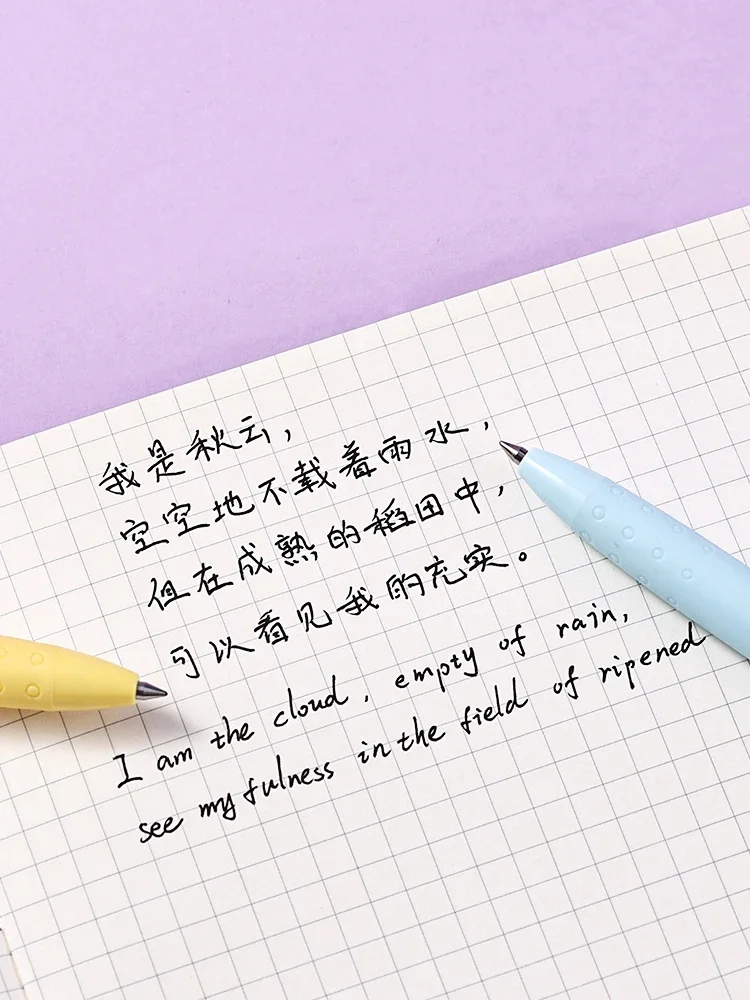 我是秋云，
空空地不载着雨水，
但在成熟的稻田中，
可以看见我的充实。
I am the cloud, empty of rain,
see my fulness in the field of ripened